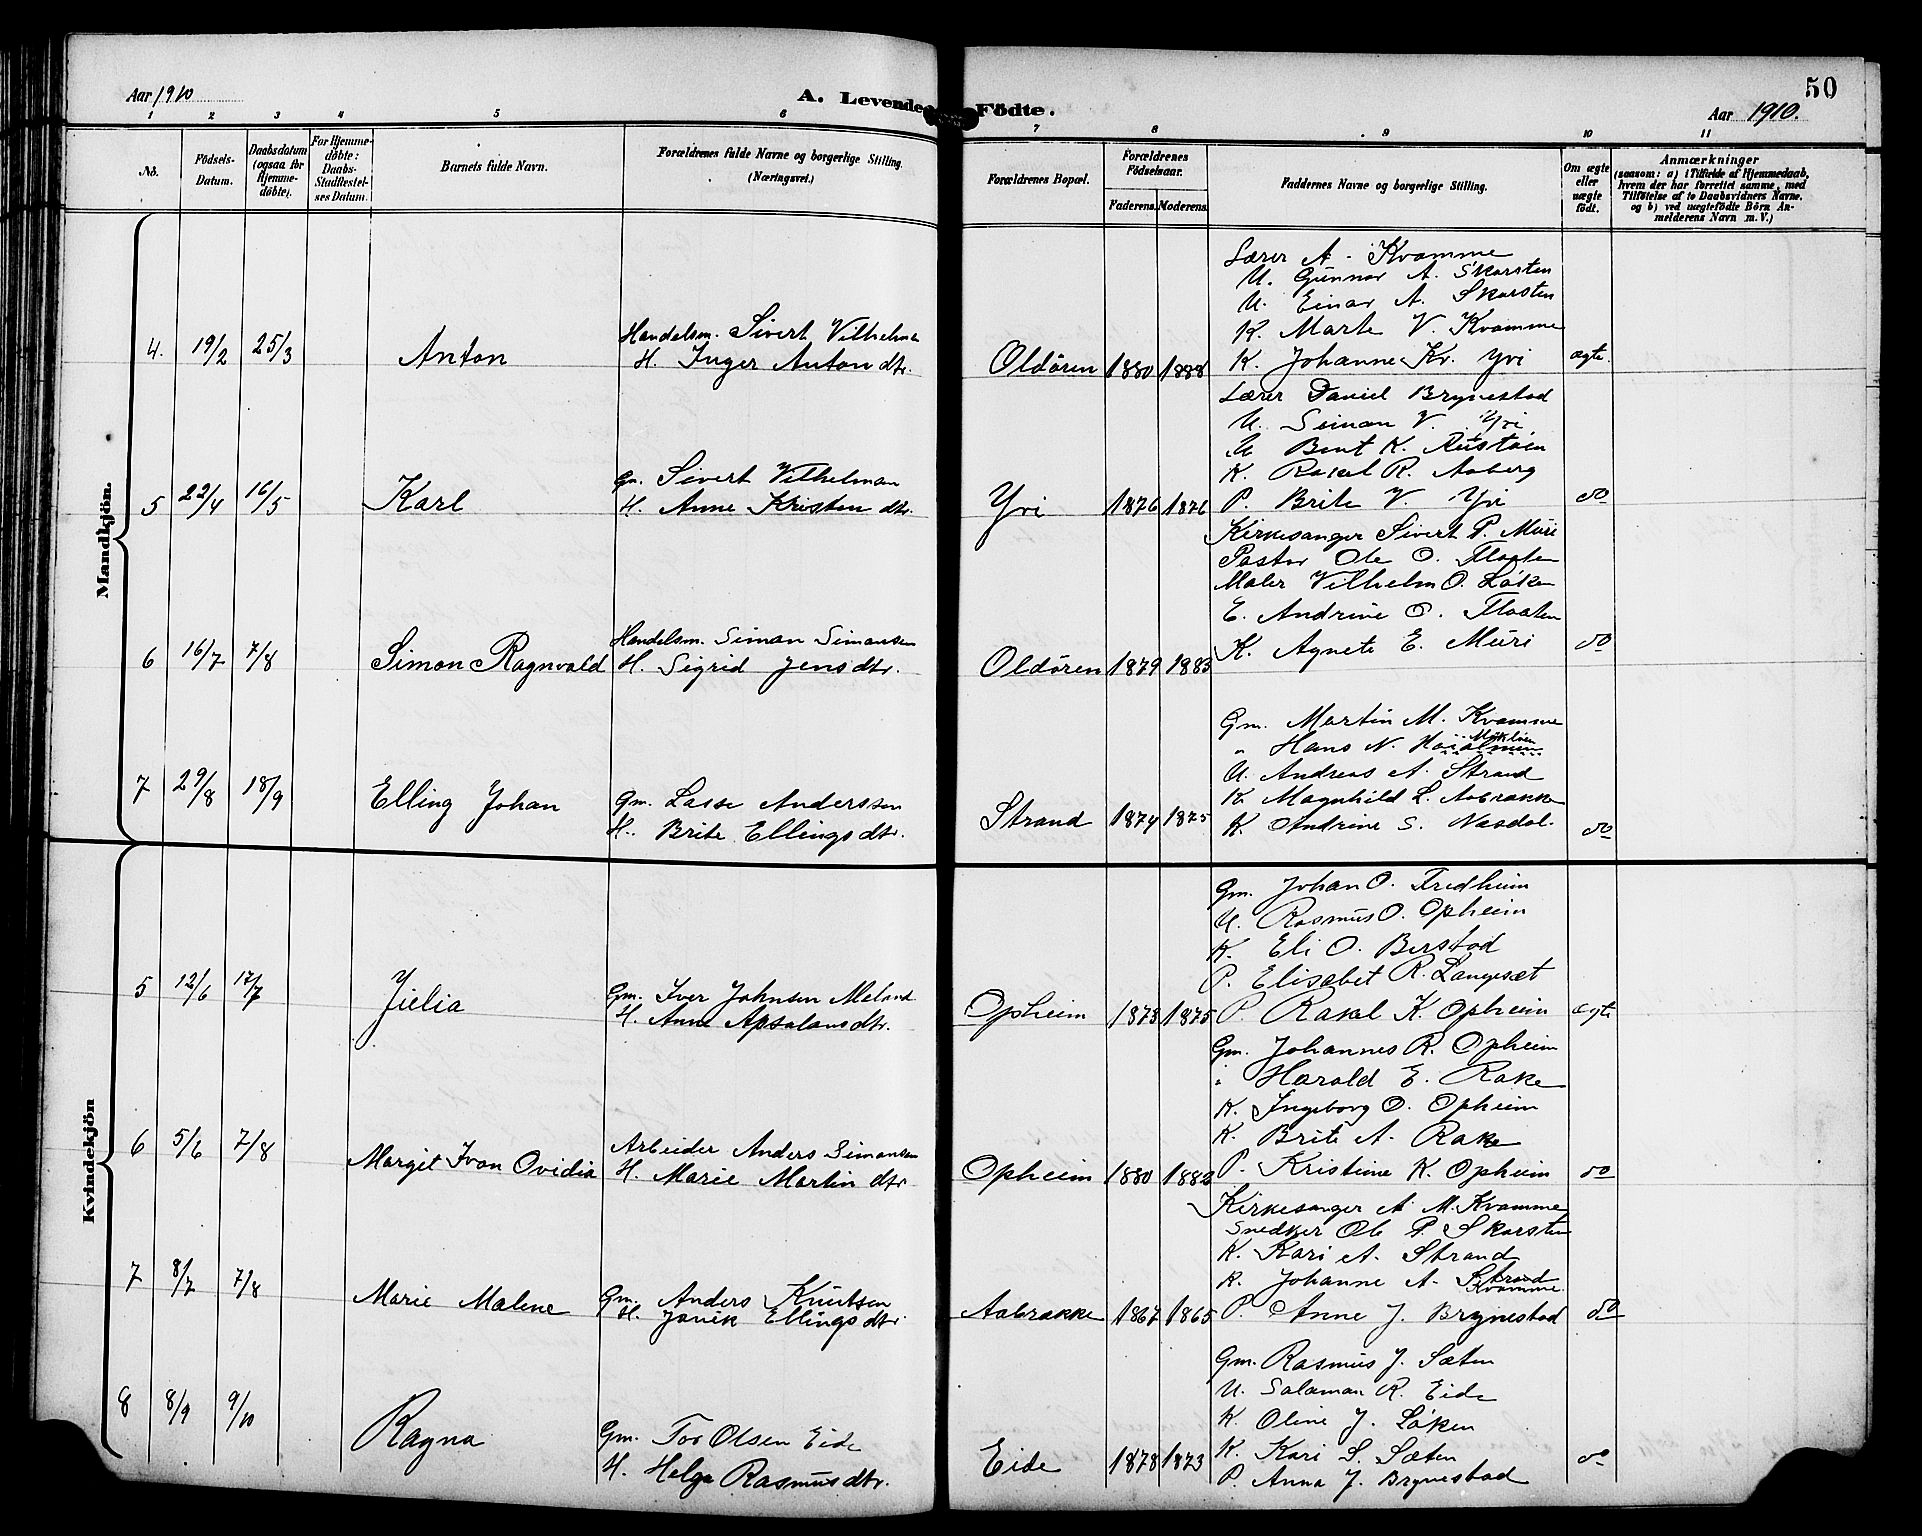 50
Aar 1910
A. Levende Födte.
Aar 1910.
1 2 3 4 5 6 7 8 9 10 11
No.
Födsels-Datum.
Daabsdatum (ogsaa för Hjemme-döbte).
For Hjemme-döbte: Daabs-Stadfæstel-ses Datum.
Barnets fulde Navn.
Forældrenes fulde Navne og borgerlige Stilling. (Næringsvei.)
Forældrenes Bopæl.
Forældrenes Födselsaar.
Faderens. Moderens.
Faddernes Navne og borgerlige Stilling.
Om ægte eller uægte födt.
Anmærkninger
(saasom: a) i Tilfælde af Hjemmedaab,
hvem der har forrettet samme, med
Tilföielse af to Daabsvidners Navne.
og b) ved uægtefödte Börn An-
melderens Navn m. V.)
Mandkjön.
4. 19/2 25/3 Anton
Handelsm. Sivert Vilhelmsen
H. Inger Anton dtr.
Oldøren 1880 1888
Lærer A. Kvamme
U. Gunnar A. Skarsten
U. Einar A. Skarsten
K. Marte V. Kvamme
K. Johanne Kr. Yri
ægte.
5 22/4 16/5 Karl
Gm. Sivert Vilhelman
H. Anne Kristen dtr.
Yri 1876 1876
Lærer Daniel Brynestad
U. Simon V. Yri
U Bent K. Rustøen
K. Rakel R. Aaberg
P. Brite V. Yri
do
6 16/7 7/8 Simon Ragnvald
Handelsm. Simon Simonsen
H. Sigrid Jens dtr.
Oldøren 1879 1883
Kirkesanger Sivert P. Muri
Pastor Ole O. Floaten
Maler Vilhelm O. Løken
E. Andrine O. Floaten
K. Agnete E. Muri
do
7 29/8 18/9 Elling Johan
Gm. Lasse Anderssen
H. Brite Ellings dtr.
Strand 1874 1875
Gm. Martin M. Kvamme
" Hans N.
U. Andreas A. Strand
K. Magnhild L. Aabrække
K. Andrine S. Næsdal.
do
Kvindekjön
5 12/6 17/7 Julia
Gm. Iver Johnsen Meland
H. Anne Apsalons dtr.
Opheim 1873 1875
Gm. Johan O. Fredheim
U. Rasmus O. Opheim
K. Eli O. Berstad
P. Elisabet R. Langesæt
P. Rakel K. Opheim
ægte
6 5/6 7/8 Margit Ivan Ovidia
Arbeider Anders Simonsen
H. Marie Martin dtr
Opheim 1880 1882
Gm. Johannes R. Opheim
" Harald E. Rake
K. Ingeborg O. Opheim
K. Brite A. Rake
P. Kristine K. Opheim
do
7 8/7 7/8 Marie Malene
Gm. Anders Knutsen
H. Jorik Ellings dtr
Aabrække 1867 1865
Kirkesanger A. M. Kvamme
Snedker Ole P. Skarsten
K. Kari A. Strand
K. Johanne A. Strand
Kvamme
P. Anne J. Brynestad
do
8 8/9 9/10 Ragna
Gm. Tor Olsen Eide
H. Helga Rasmus dtr.
Eide 1878 1873
Gm. Rasmus J. Sæten
U. Salamon R. Eide
K. Oline J. Løken
K. Kari S. Sæten
P. Anna J. Brynestad
do